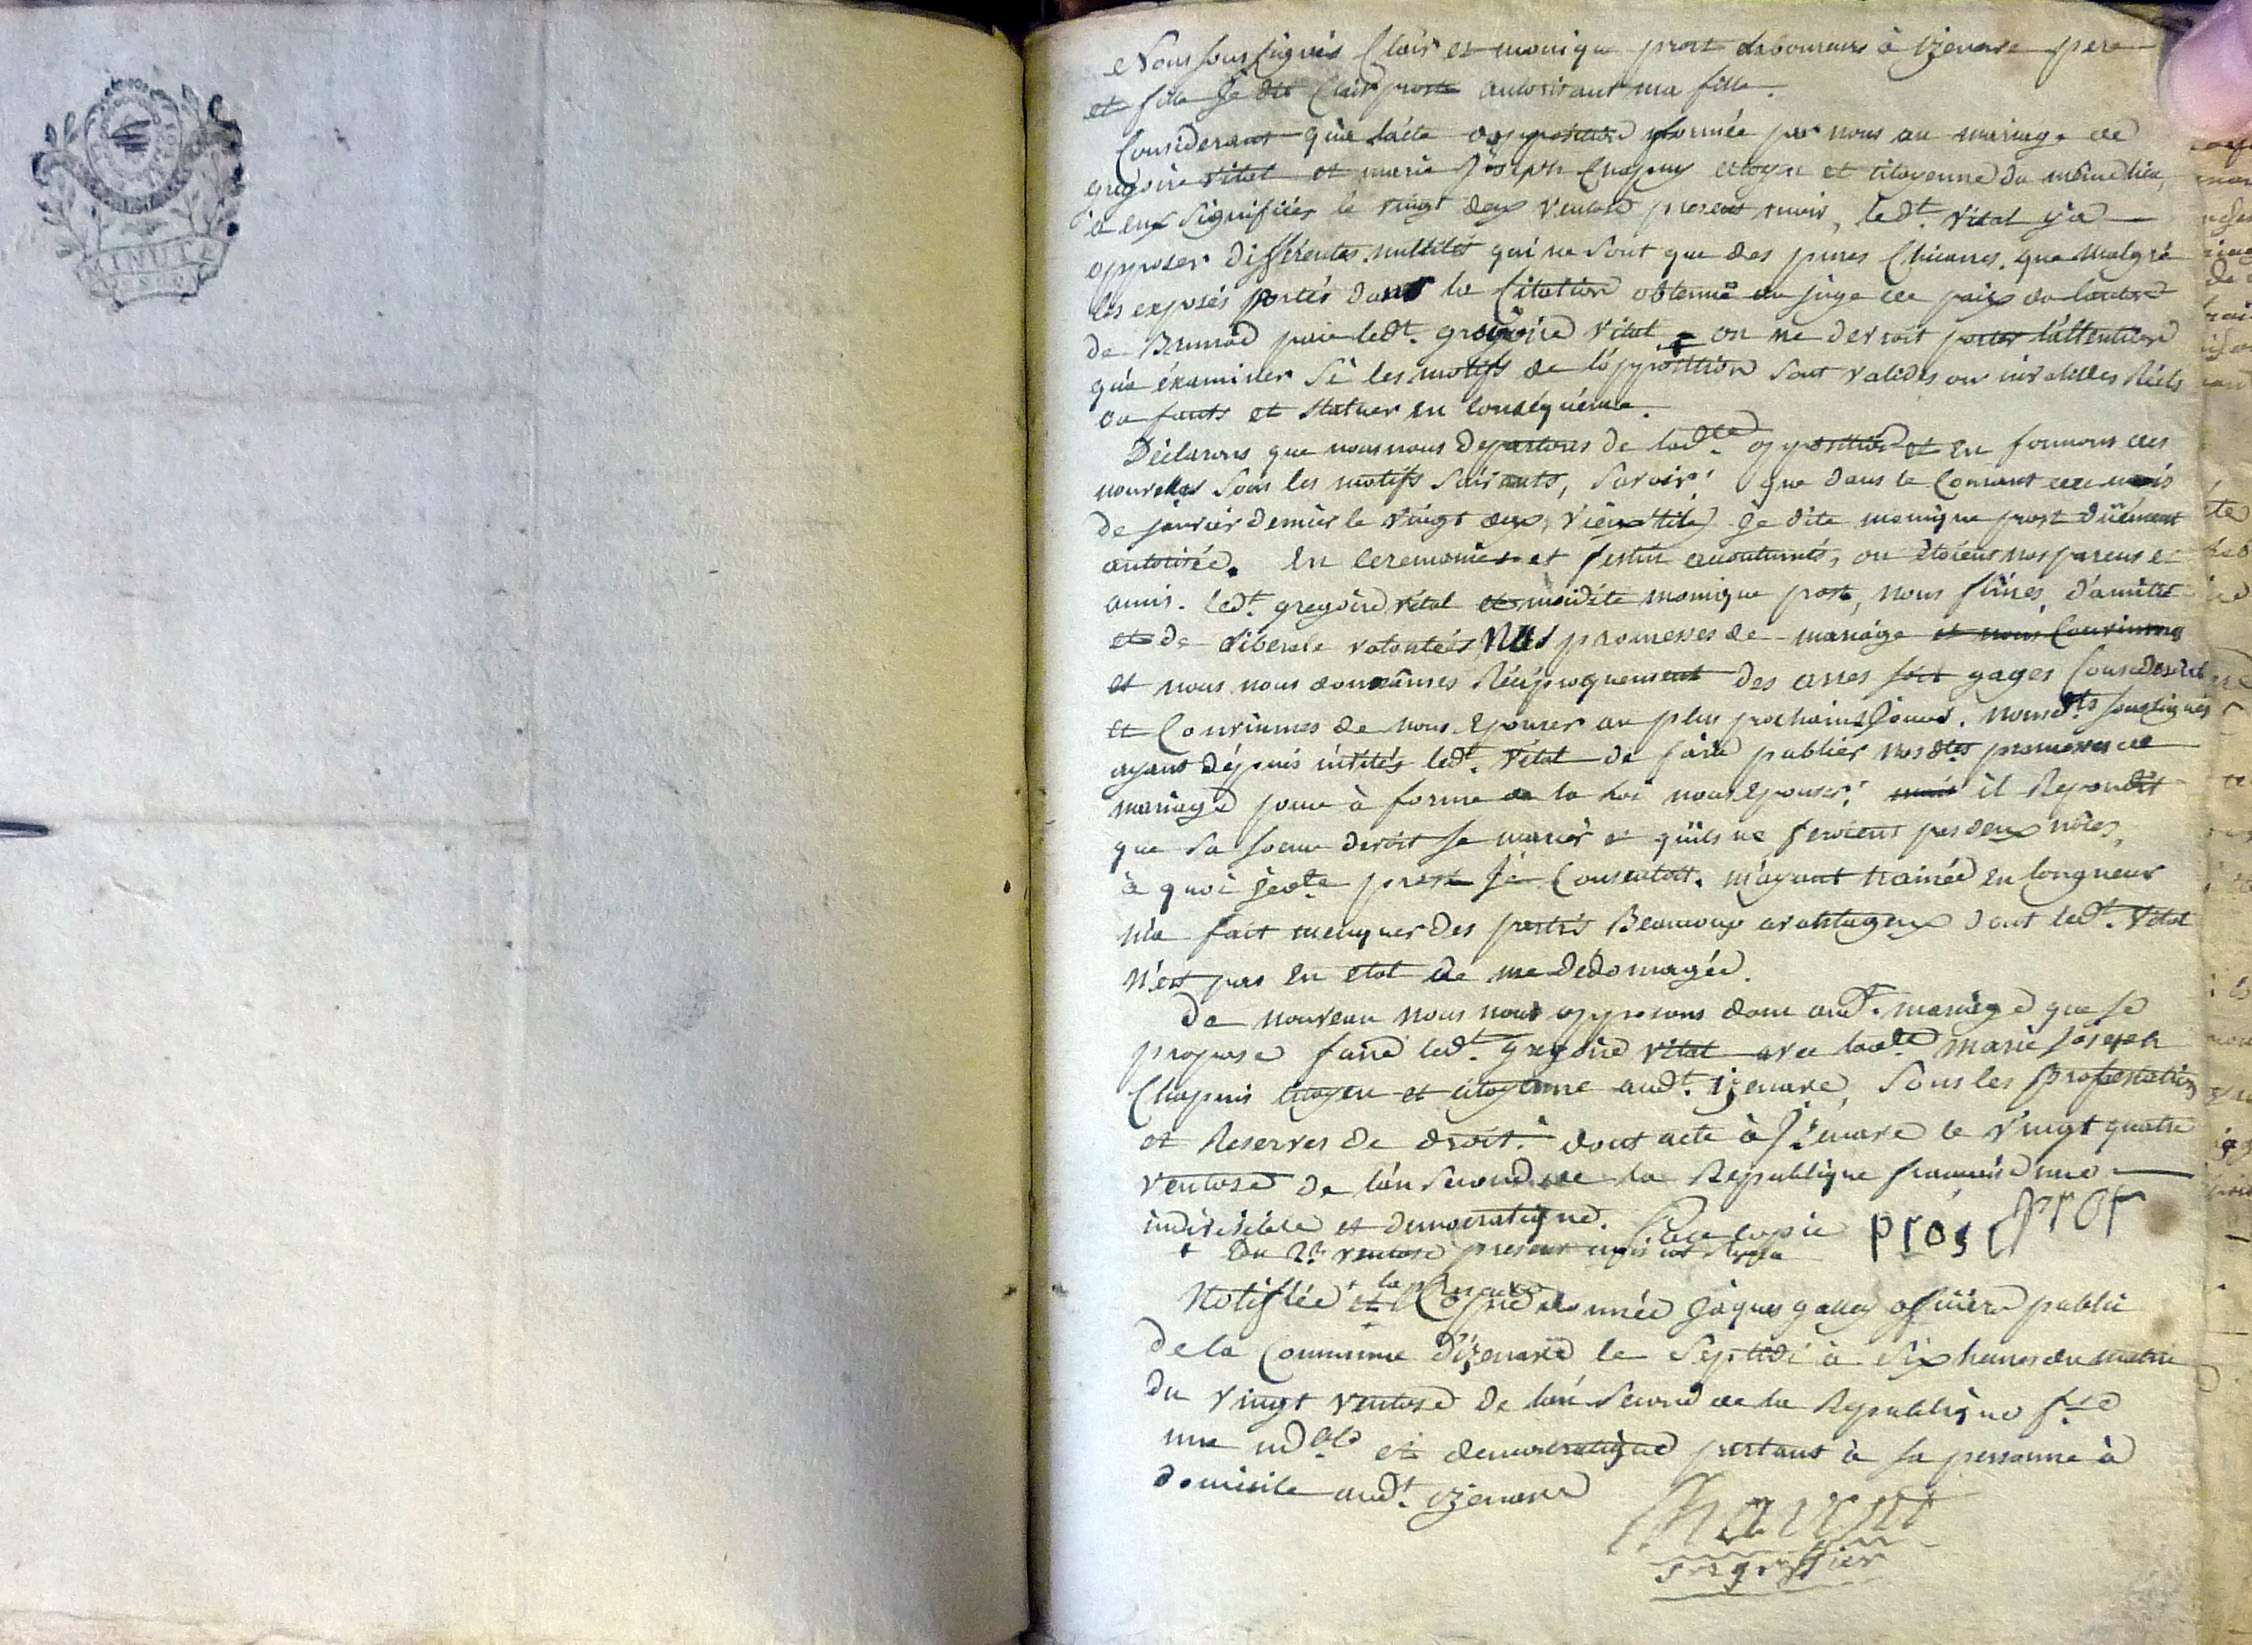 MINUTE
Nous sous signés Clair et monique prost laboureurs à izenave pere
et fille Je dit Clair prost autorisant ma fille.
Considerant que l'acte opposition formée par nous au mariage de
gregoire vital et marie Joseph Chapuy citoyen et citoyenne du même lieu,
à eux signifiées le vingt deux ventose present mois, ledt. vital y a
opposer différentes nullités qui ne sont que des pures Chicanes. que malgré
les exposés portés dans la Citation obtenue du juge de paix du Canton
de Brenod par ledt. gregoire vital on ne devroit porter l'attention
qu'a éxaminer si les motifs de l'opposition sont valides ou invalides Réels
ou fauts et statuer en conséquence.
Déclarons que nous nous departons de ladte. opposition et en formons des
nouvelles sous les motifs suivants, savoir: que dans le Courant du mois
de janvier dernier le vingt deux, vieux stile, Je dite monique prost duëment
autorisée. En ceremonies et festin accoutumés, ou étoient nos parens et
amis. ledt. gregoire vital et moidite monique prost, nous fimes d'amitié
et de liberale volontés, Nos promesses de mariage et nous Convinmes
et nous nous donnâmes Réciproquement des arres soit gages
et Convinmes de nous Epouser au plus prochains Jours. nousdts. soussignés
ayant dépuis invités ledt. vital de faire publier nosdtes. promesses de
mariage pour à forme de la loi nous Epouser: mais il Repondit
que sa soeur devoit se marier et qu'ils ne feroient pas deux nôces,
à quoi jedte. prost Je Consentoit. m'ayant trainée en longueur
m'a fait manquer des partis Beaucoup avantageux dont ledt. vital
n'est pas en etat de me dédomagée.
De nouveau nous nous opposons donc audt. mariage que se
propose faire ledt. gregoire vital avec ladte. marie Joseph
Chapuis citoyen et citoyenne audt. izenave, sous les protestations
et Reserves de droit. dont acte à Izenave le vingt quatre
ventose de l'an second de la Republique francaise une
indivisible et democratique. prost prost
+ Du ventose present mois
Notifiée et Copie donnée Jâques officier public
de la Commune d'izenave le Septidi à six heures du matin
du vingt ventose de l'an second de la Republique fse
une indble et democratique partant à sa personne à
domicile audt. izenave
greffier